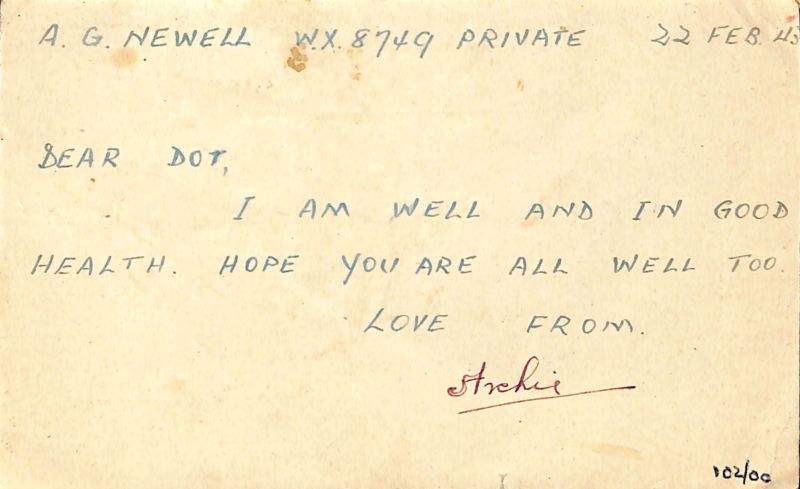 A. G. NEWELL W.X. 8749 PRIVATE 22 FEB. 43
DEAR DOT,
I AM WELL AND IN GOOD
HEALTH. HOPE YOU ARE ALL WELL TOO.
LOVE FROM.
Archie
102/00